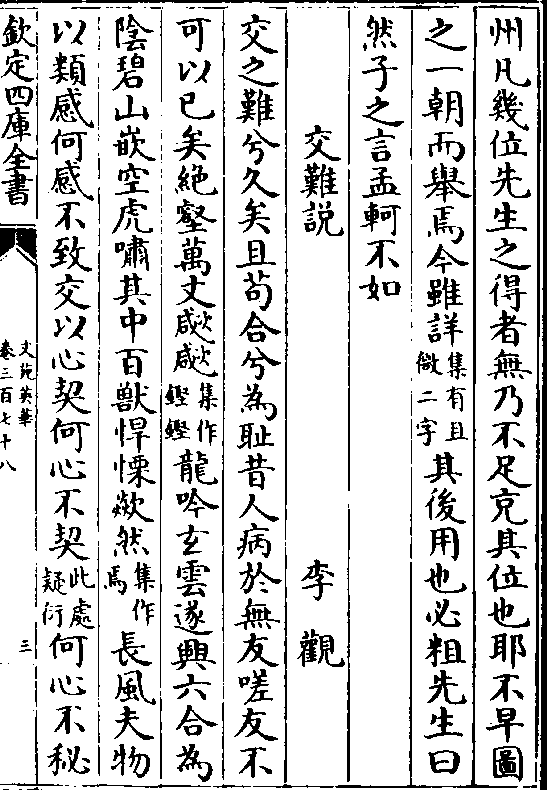 州凡幾位先生之得者無乃不足克其位也耶不早圖
之一朝而舉焉今雖詳集有且儆二字其後用也必粗先生曰
然子之言孟軻不如
交難説　李觀
交之難兮久矣且苟合兮為恥昔人病於無友嗟友不
可以已矣絶壑萬丈集作鏗鏗龍吟玄雲遂興六合為
陰碧山嵌空虎嘯其中百獸悍慄歘然集作焉長風夫物
以類感何感不致交以心契何心不契此處疑衍何心不秘
欽定四庫全書
文苑英華
卷三百七十八
三